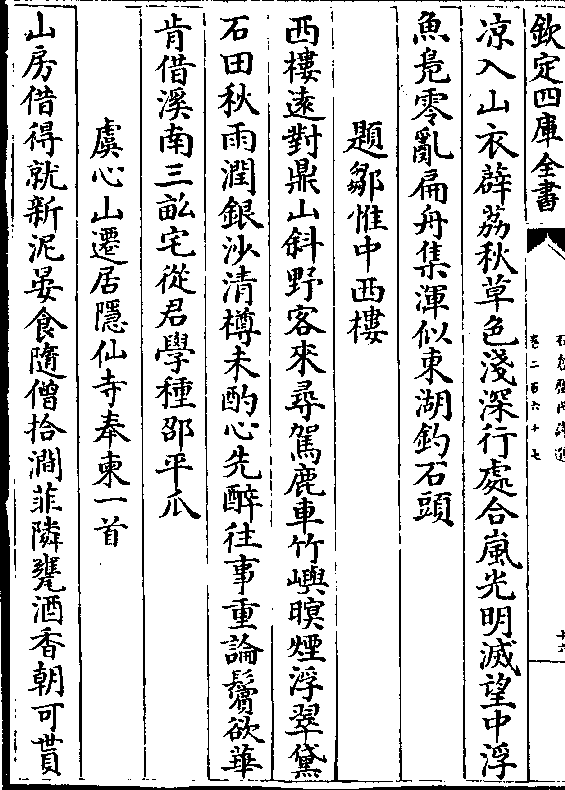 欽定四庫全書
卷二百六十七
十六
凉入山衣薜荔秋草色淺深行處合嵐光明滅望中浮
魚鳧零亂扁舟集渾似東湖釣石頭
題鄒惟中西樓
西樓遠對鼎山斜野客來尋駕鹿車竹嶼暝煙浮翠黛
石田秋雨潤銀沙清樽未酌心先醉往事重論鬢欲華
肯借溪南三畝宅從君學種邵平瓜
虞心山遷居隱仙寺奉柬一首
山房借得就新泥晏食隨僧拾澗菲隣甕酒香朝可貰